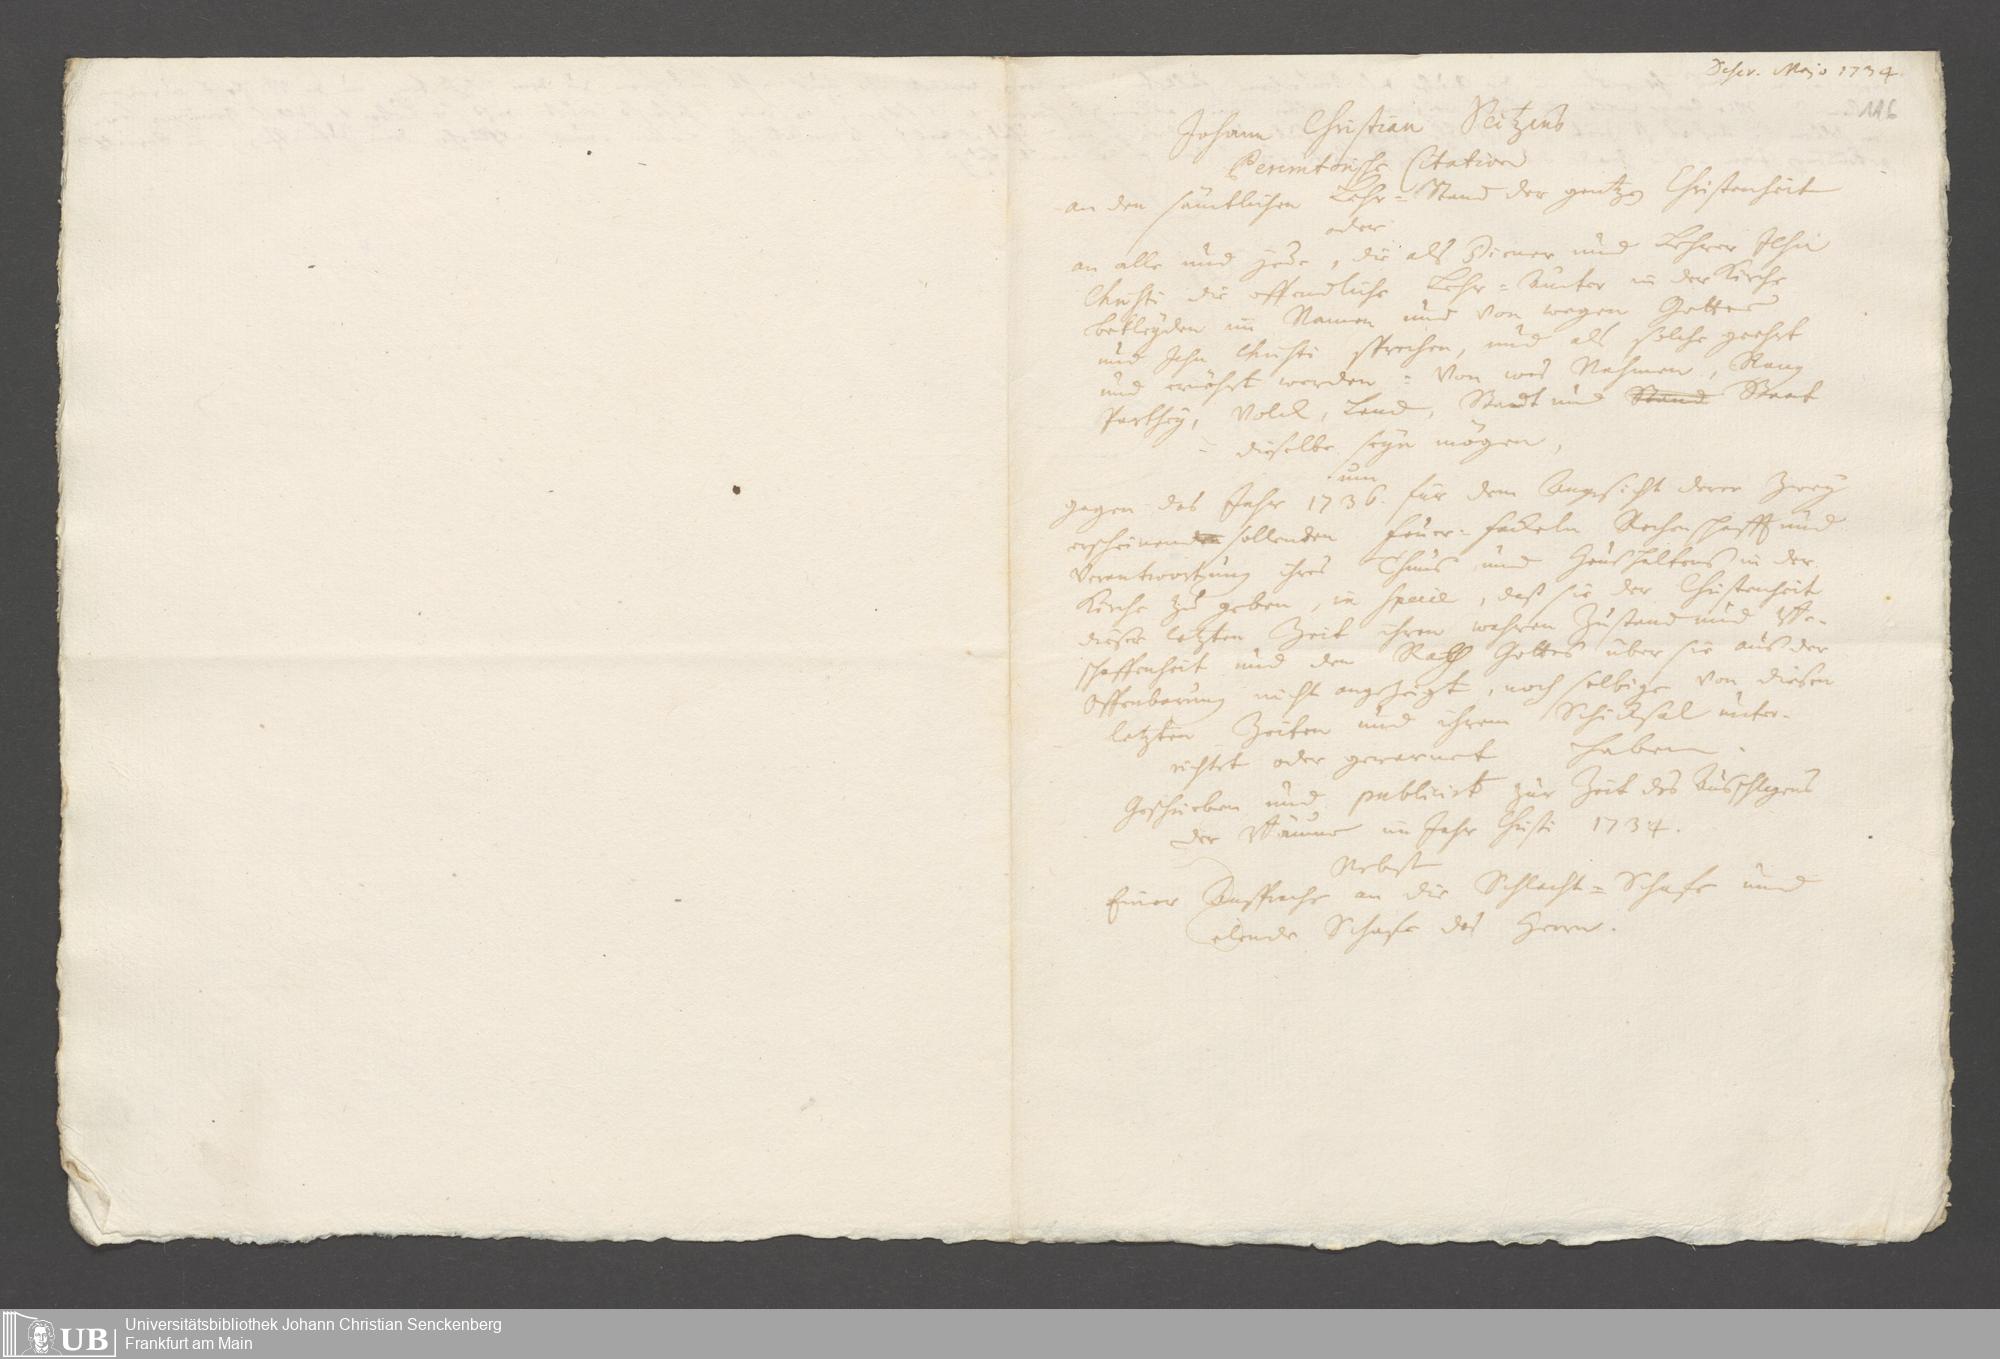 Descr. Majo 1734.
116
Johann Christian Seitzens
Peremtorische Citation
an den sämtlichen Lehr-Stand der gantzen Christenheit
oder
an alle und jede, die als Diener und Lehrer JEsu
Christi die offendliche Lehr-Ämter in der Kirche
bekleyden im Namen und von wegen Gottes
und Jesu Christi sprechen, und als solche geehrt
und ernährt werden: Von was Nahmen, Rang
Parthey, Volck, Land, Stadt und Stand Staat
dieselbe seyn mögen,
um
gegen das Jahr 1736. für dem Angesicht derer Zwey
erscheinen sollenden Feuer-Fackeln Rechenschafft und
Verantwortung ihres Thuns und Haushaltens in der
Kirche zu geben, in specie, daß sie der Christenheit
dieser letzten Zeit ihren wahren Zustand und Be-
schaffenheit und den Rath Gottes über sie aus der
Offenbarung nicht angezeigt, noch selbige von diesen
letzten Zeiten und ihrem Schicksal unter-
richtet oder gewarnet haben.
Geschrieben und publicirt zur Zeit des Ausschlagens
der Bäume im Jahr Christi 1734.
Nebst
Einer Ansprache an die Schlacht-Schafe und
elende Schafe des Herrn.
UB
Universitätsbibliothek Johann Christian Senckenberg
Frankfurt am Main